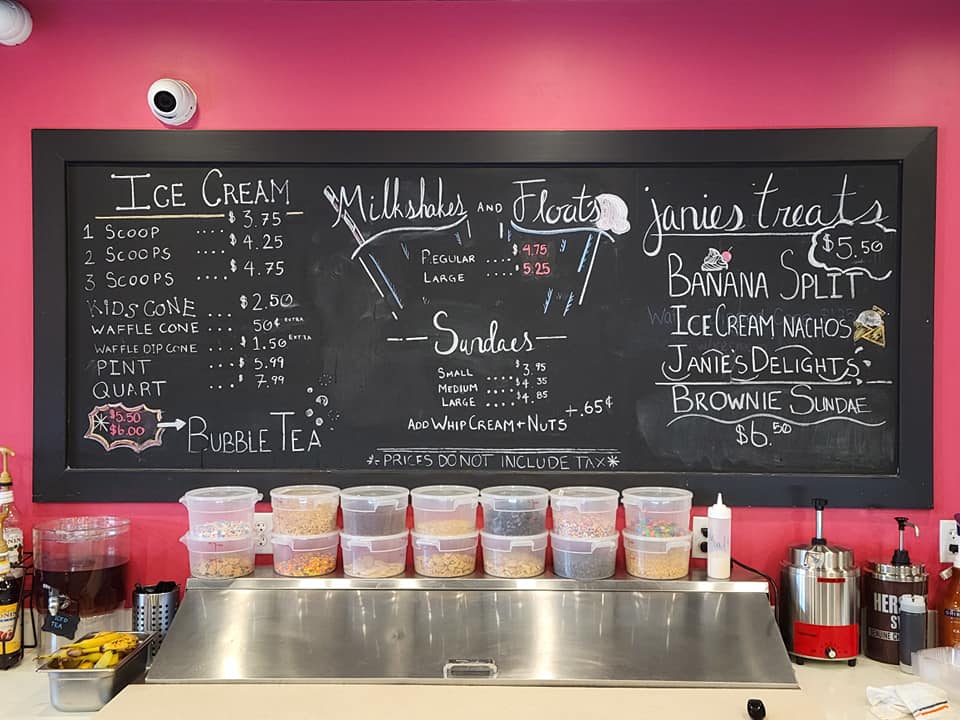 ICE CREAM
1 SCOOP .... $3.75
2 SCOOPS .... $4.25
3 SCOOPS .... $4.75
KIDS CONE ... $2.50
WAFFLE CONE ... 50¢ EXTRA
WAFFLE DIP CONE ... $1.50 EXTRA
PINT ... $5.99
QUART ... $7.99
* $5.50
$6.00
BUBBLE TEA
Milkshakes AND Floats
REGULAR .... $4.75
LARGE .... $5.25
Sundaes
SMALL .... $3.95
MEDIUM .... $4.35
LARGE .... $4.85
ADD WHIP CREAM + NUTS +.65¢
*PRICES DO NOT INCLUDE TAX*
janies treats
$5.50
BANANA SPLIT
ICE CREAM NACHOS
JANIE'S DELIGHTS
BROWNIE SUNDAE
$6.50
ICED
TEA
HERS
SY
GENUINE CH